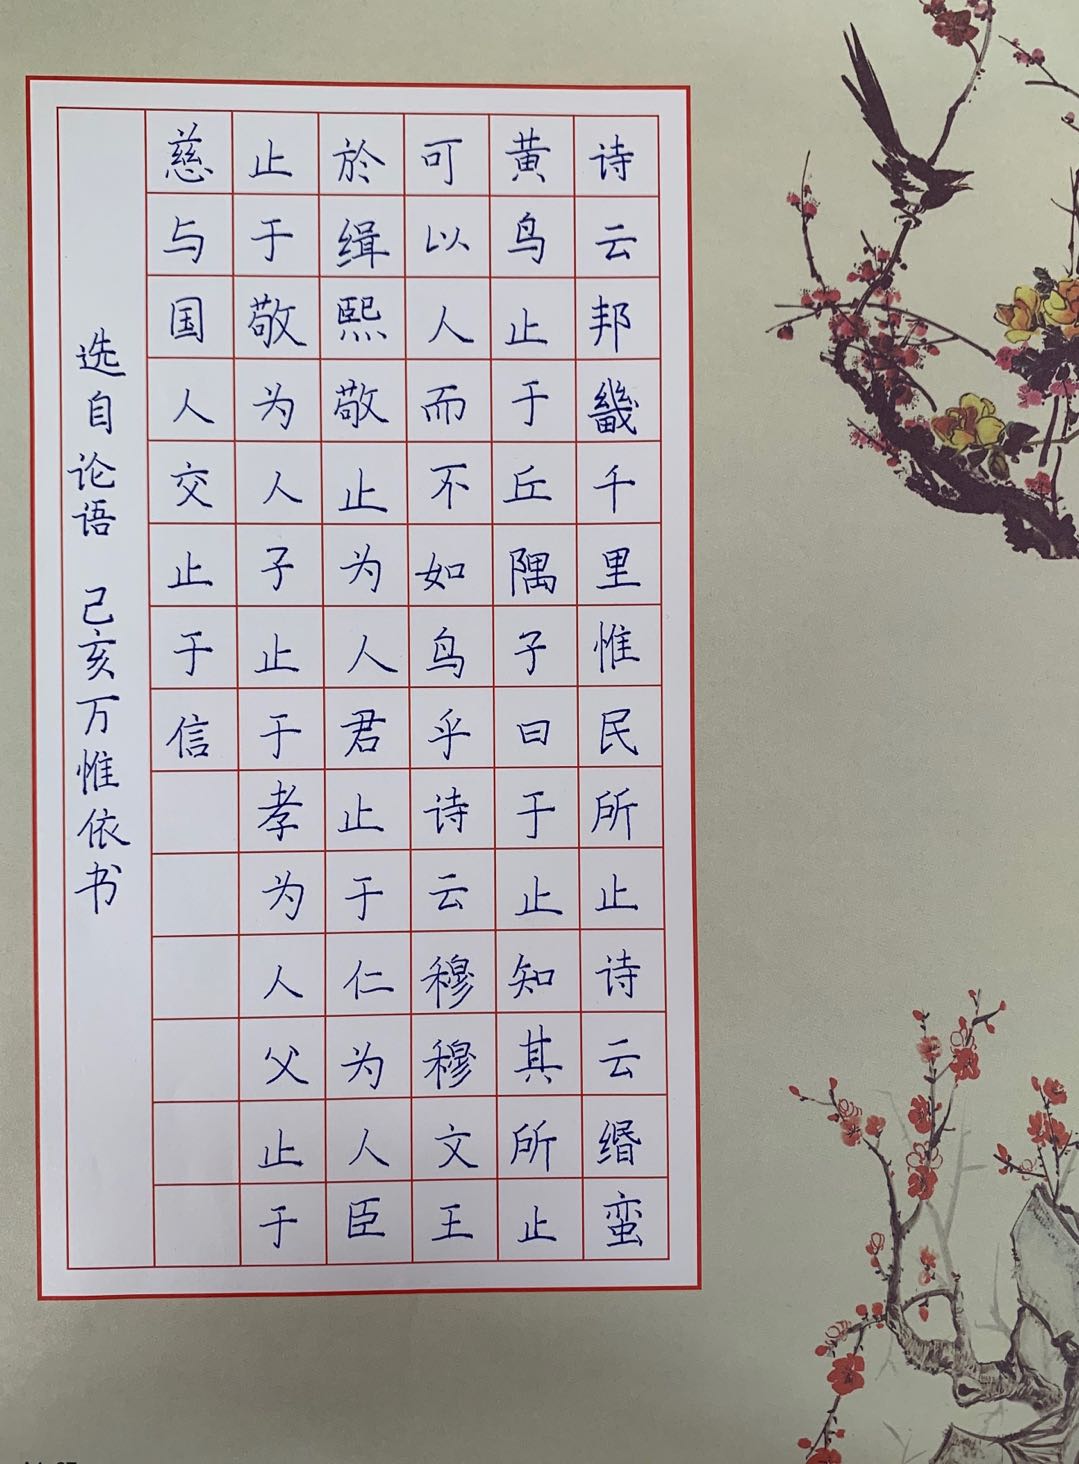 诗云邦畿千里惟民所止诗云缗蛮
黄鸟止于丘隅子曰于止知其所止
可以人而不如鸟乎诗云穆穆文王
於缉熙敬止为人君止于仁为人臣
止于敬为人子止于孝为人父止于
慈与国人交止于信
选自论语 己亥万惟依书